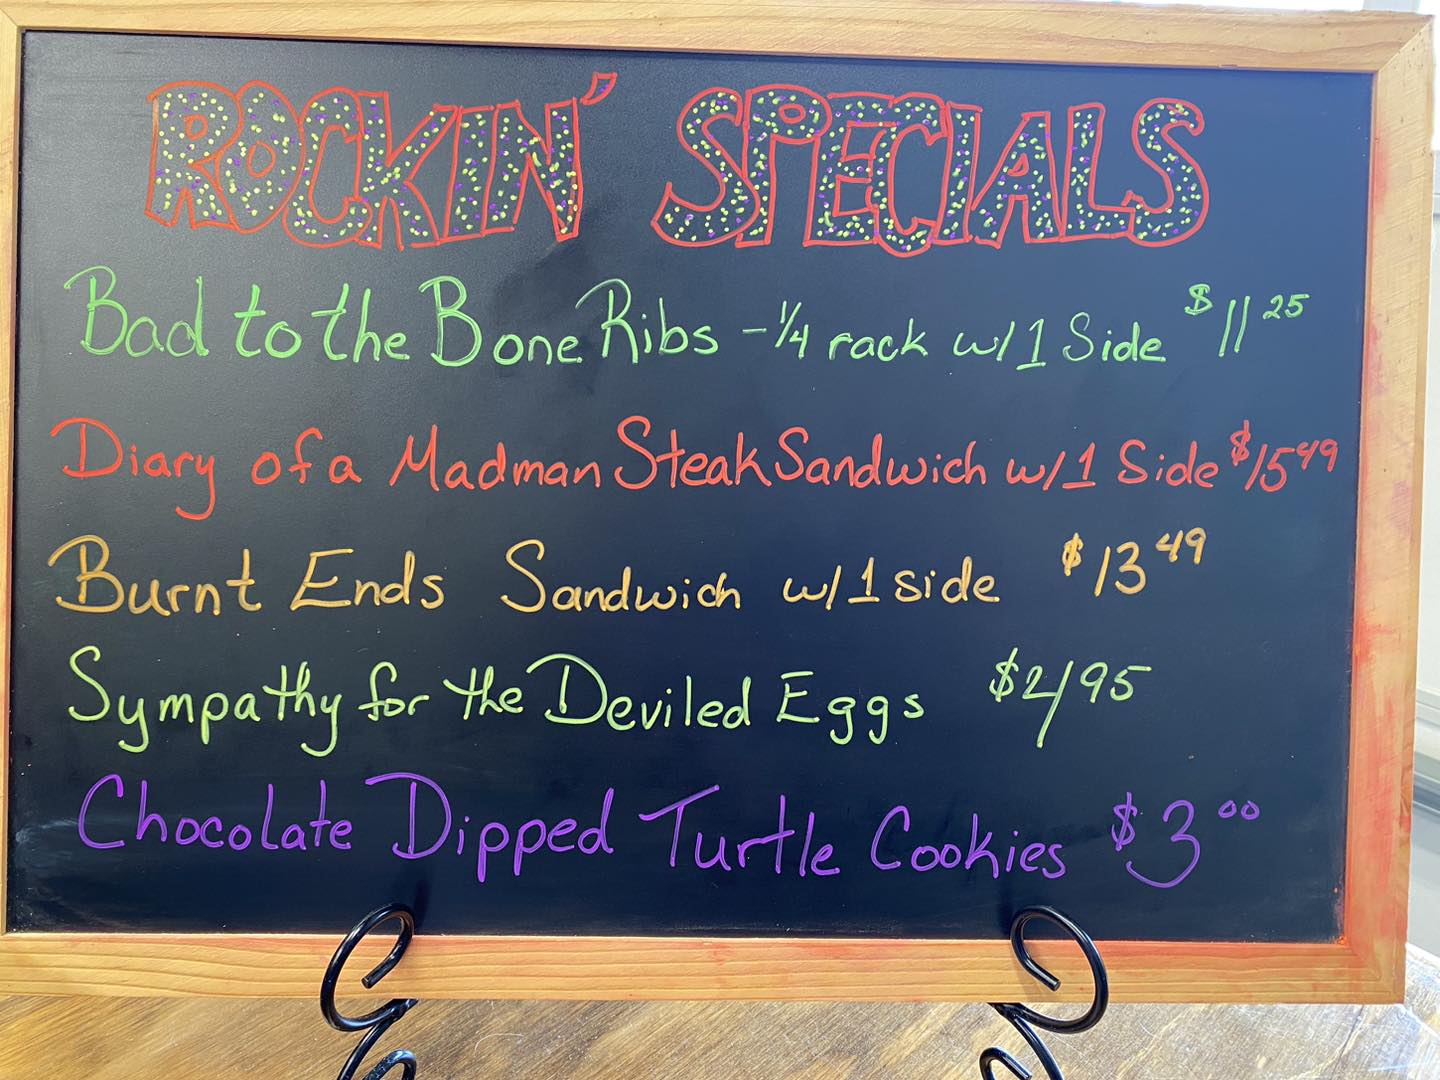 ROCKIN' SPECIALS
Bad to the Bone Ribs - 1/4 rack w/ 1 Side $11 25
Diary of a Madman Steak Sandwich w/ 1 Side $15 49
Burnt Ends Sandwich w/ 1 side $13 49
Sympathy for the Deviled Eggs $4 95
Chocolate Dipped Turtle Cookies $3 00